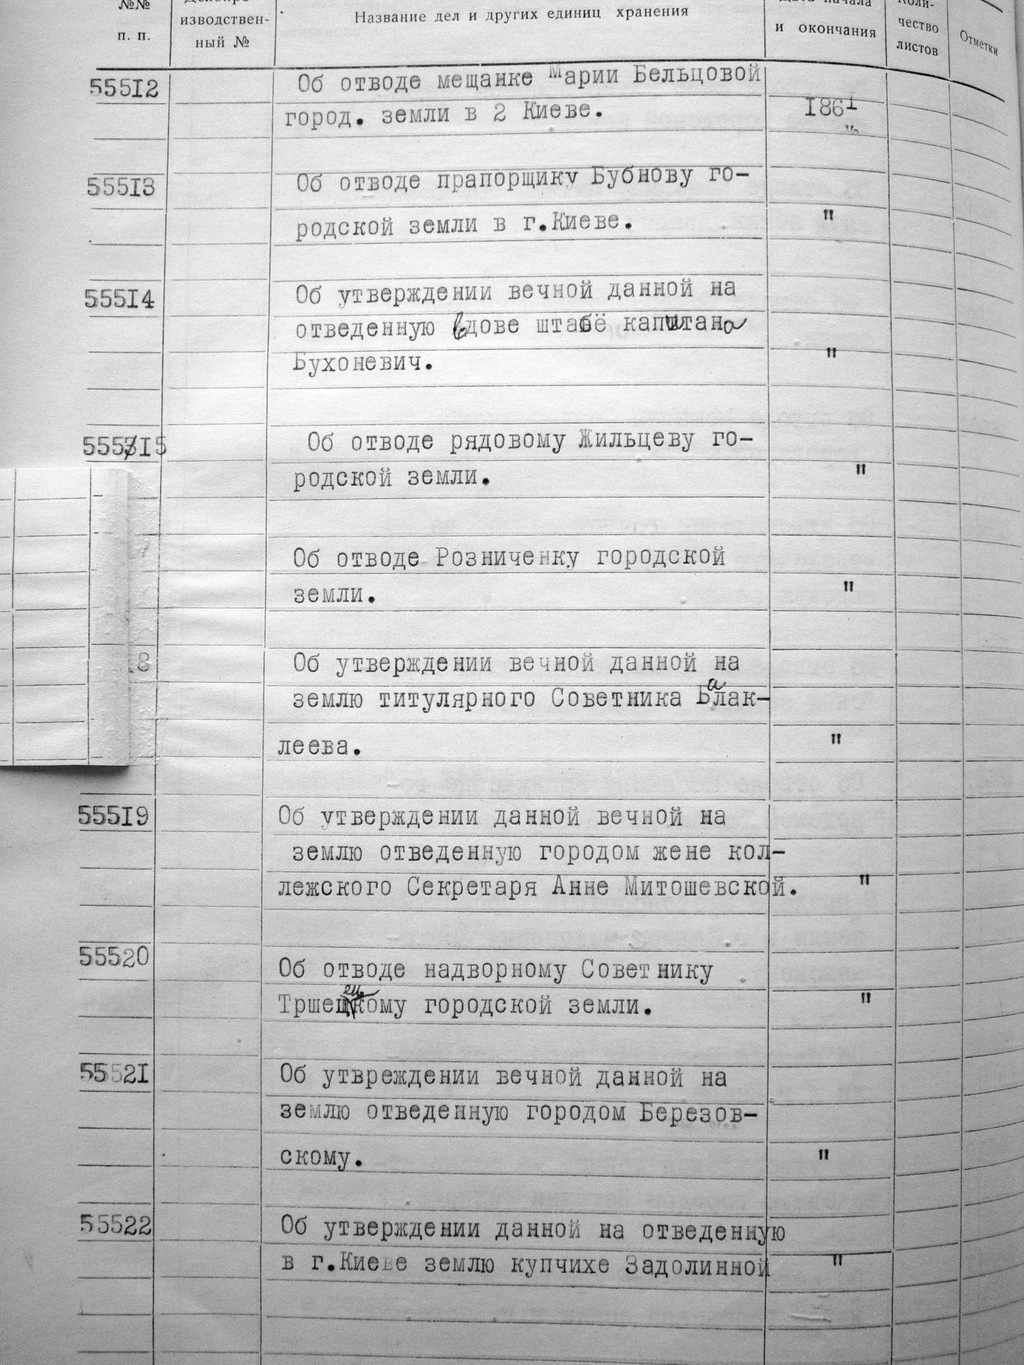 №№ п. п.
изводствен-
ный №
Название дел и других единиц хранения
и окончания
чество
листов
Отметки
55512 Об отводе мещанке Марии Бельцовой
город. земли в 2 Киеве. 1861
55513 Об отводе прапорщику Бубнову го-
родской земли в г.Киеве. "
55514 Об утверждении вечной данной на
отведенную вдове штабс капитана
Бухоневич. "
55515 Об отводе рядовому Жильцеву го-
родской земли. "
7 Об отводе Розниченку городской
земли. "
8 Об утверждении вечной данной на
землю титулярного Советника Балак-
леева. "
55519 Об утверждении данной вечной на
землю отведенную городом жене кол-
лежского Секретаря Анне Митошевской. "
55520 Об отводе надворному Советнику
городской земли. "
55521 Об утвреждении вечной данной на
землю отведенную городом Березов-
скому. "
55522 Об утверждении данной на отведенную
в г.Киеве землю купчихе Задолинной "